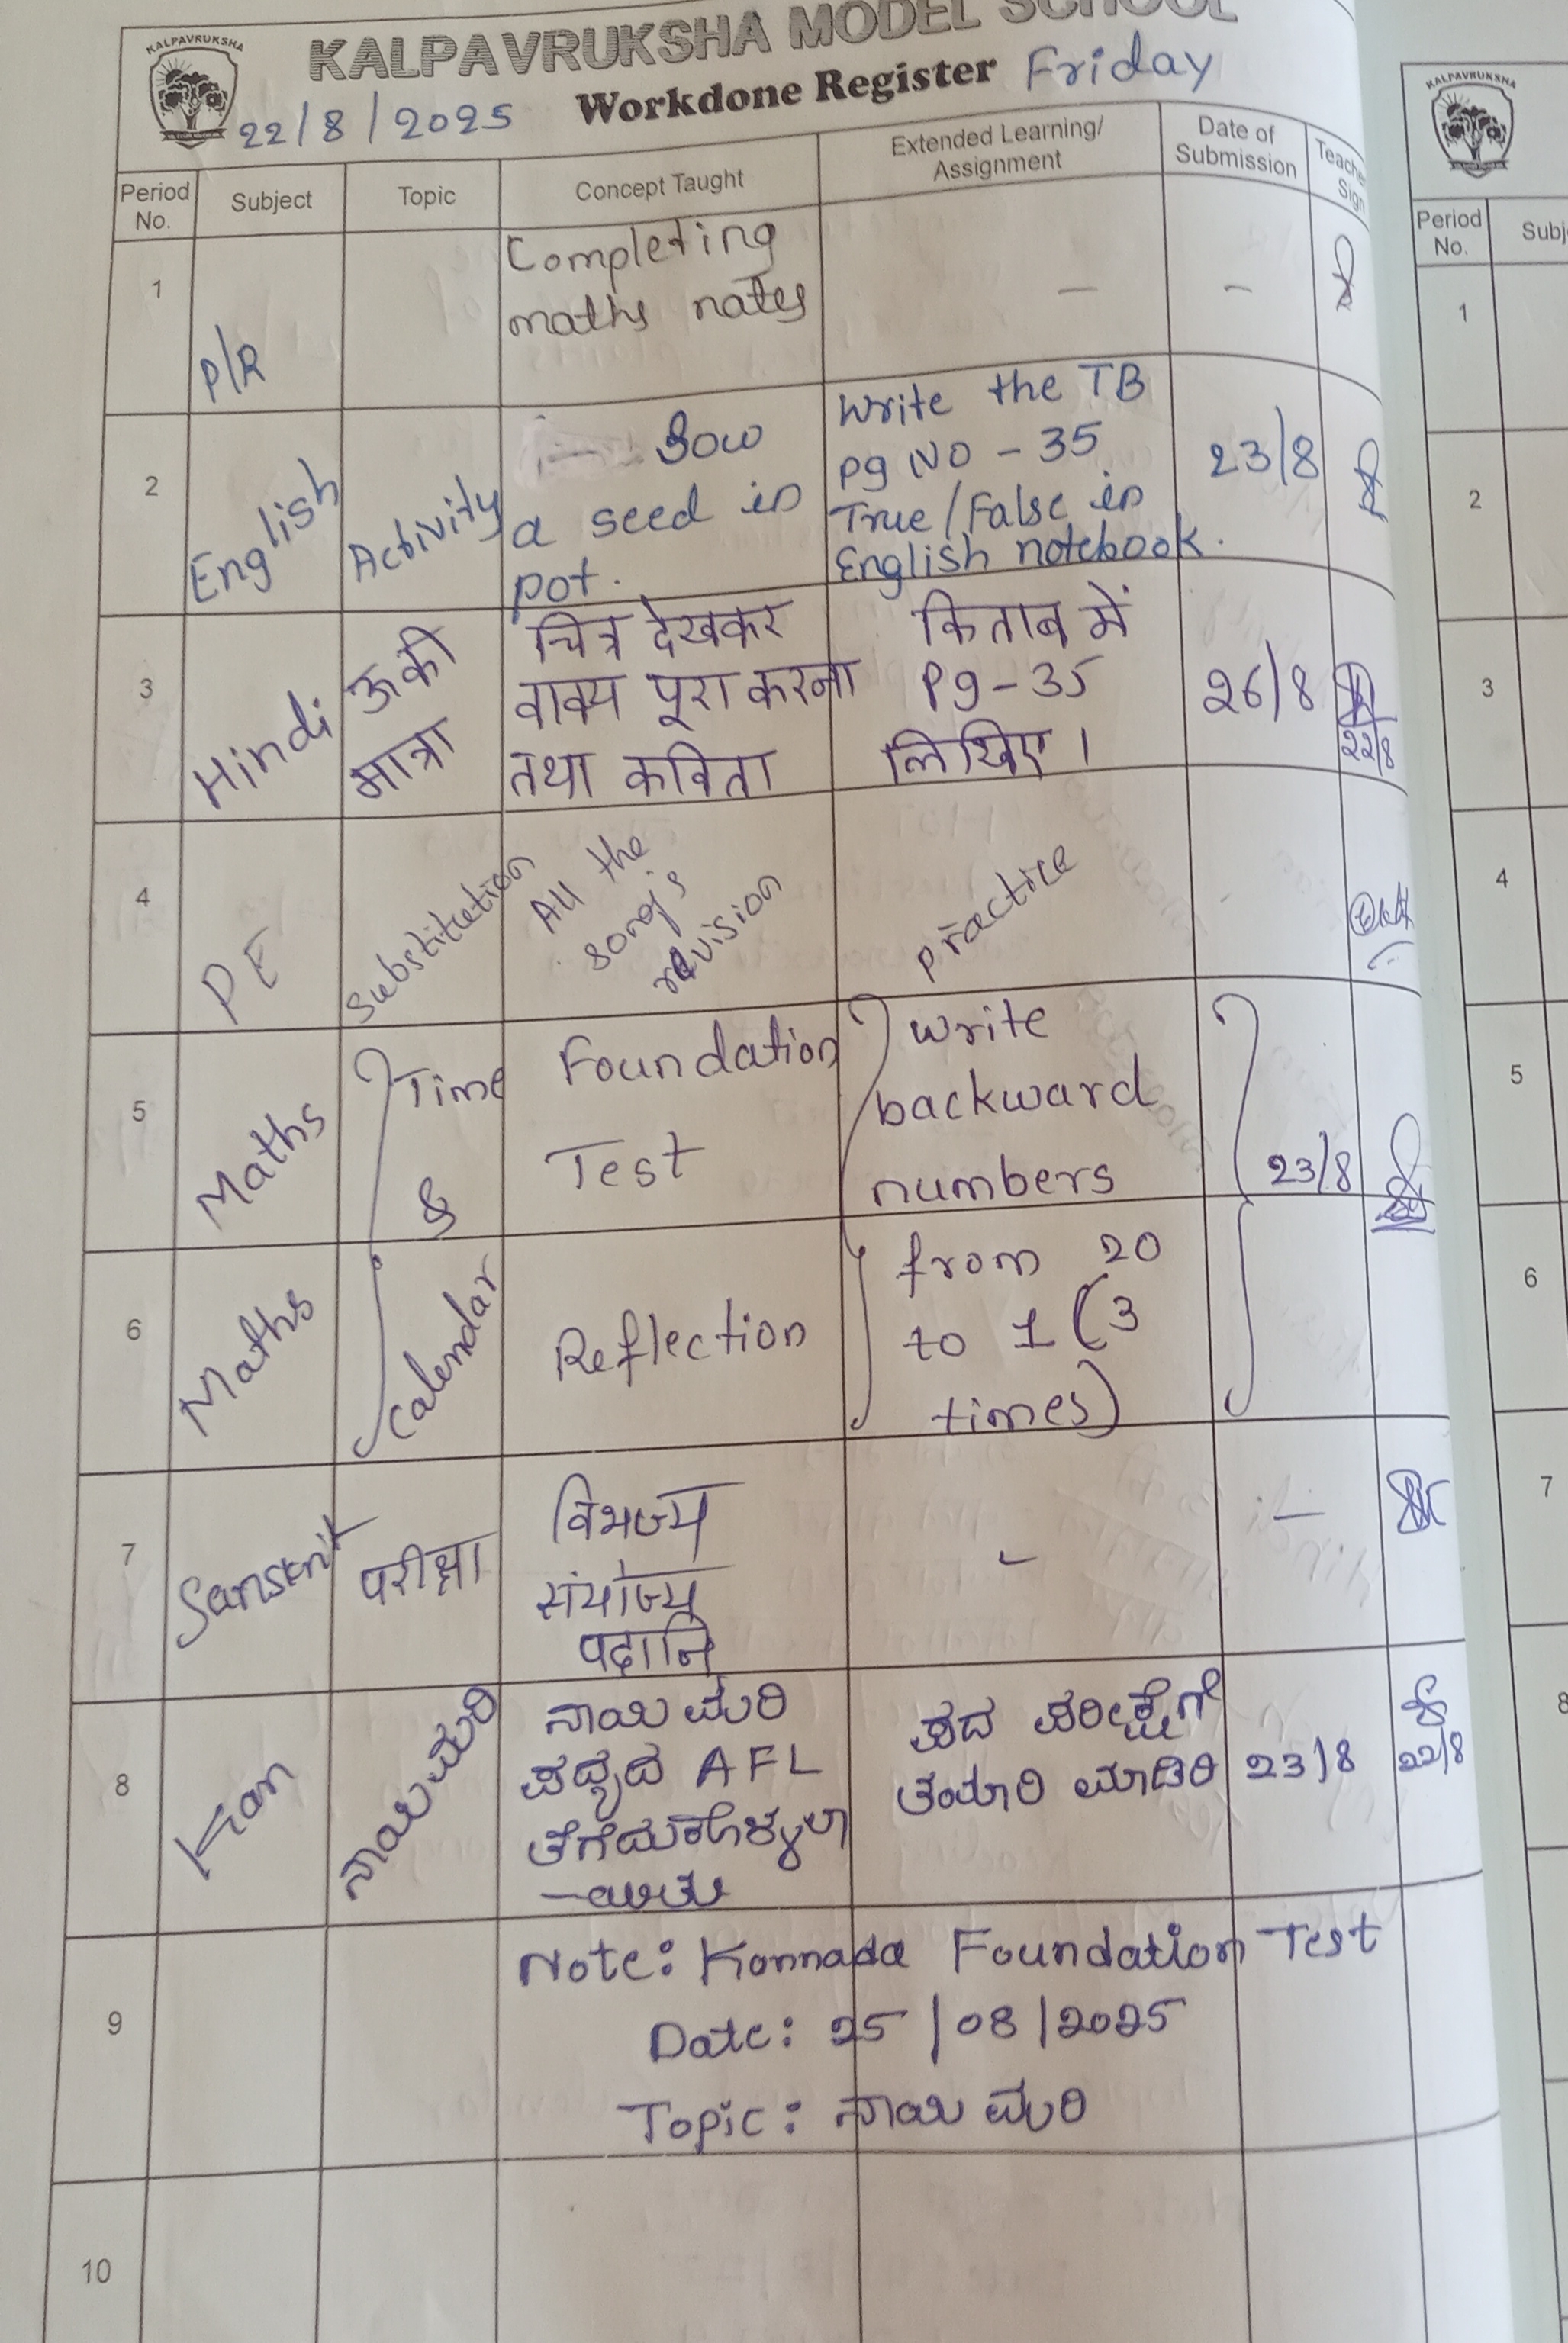 KALPAVRUKSHA MODEL SCHOOL
KALPAVRUKSHA
Workdone Register Friday
22/8/2025
Period No.
Subject
Topic
Concept Taught
Extended Learning/
Assignment
Date of
Submission
Teacher
Sign
1
P/R
Completing
maths notes
–
–
2
English
Activity
Sow
a seed in
pot.
Write the TB
Pg NO - 35
True/False in
English notebook.
23/8
3
Hindi
ऊ की
मात्रा
चित्र देखकर
वाक्य पूरा करना
तथा कविता
किताब में
Pg-35
लिखिए।
26/8
22/8
4
PE
Substitution
All the
song's
revision
practice
5
Maths
Time
&
Foundation
Test
write
backward
numbers
23/8
6
Maths
Calendar
Reflection
from 20
to 1 (3
times)
7
Sanskrit
परीक्षा
विभज्य
संयोज्य
पदानि
-
–
8
Kan
ನಾಯಿಮರಿ
ನಾಯಿ ಮರಿ
ಪದ್ಯದ AFL
ತೆಗೆದುಕೊಳ್ಳಲಾ
-ಯಿತು
ಪದ ಪರೀಕ್ಷೆಗೆ
ತಯಾರಿ ಮಾಡಿರಿ
23/8
22/8
9
Note: Kannada Foundation Test
Date: 25/08/2025
Topic: ನಾಯಿ ಮರಿ
10
KALPAVRUKSHA
Period
No.
Subj
1
2
3
4
5
6
7
8